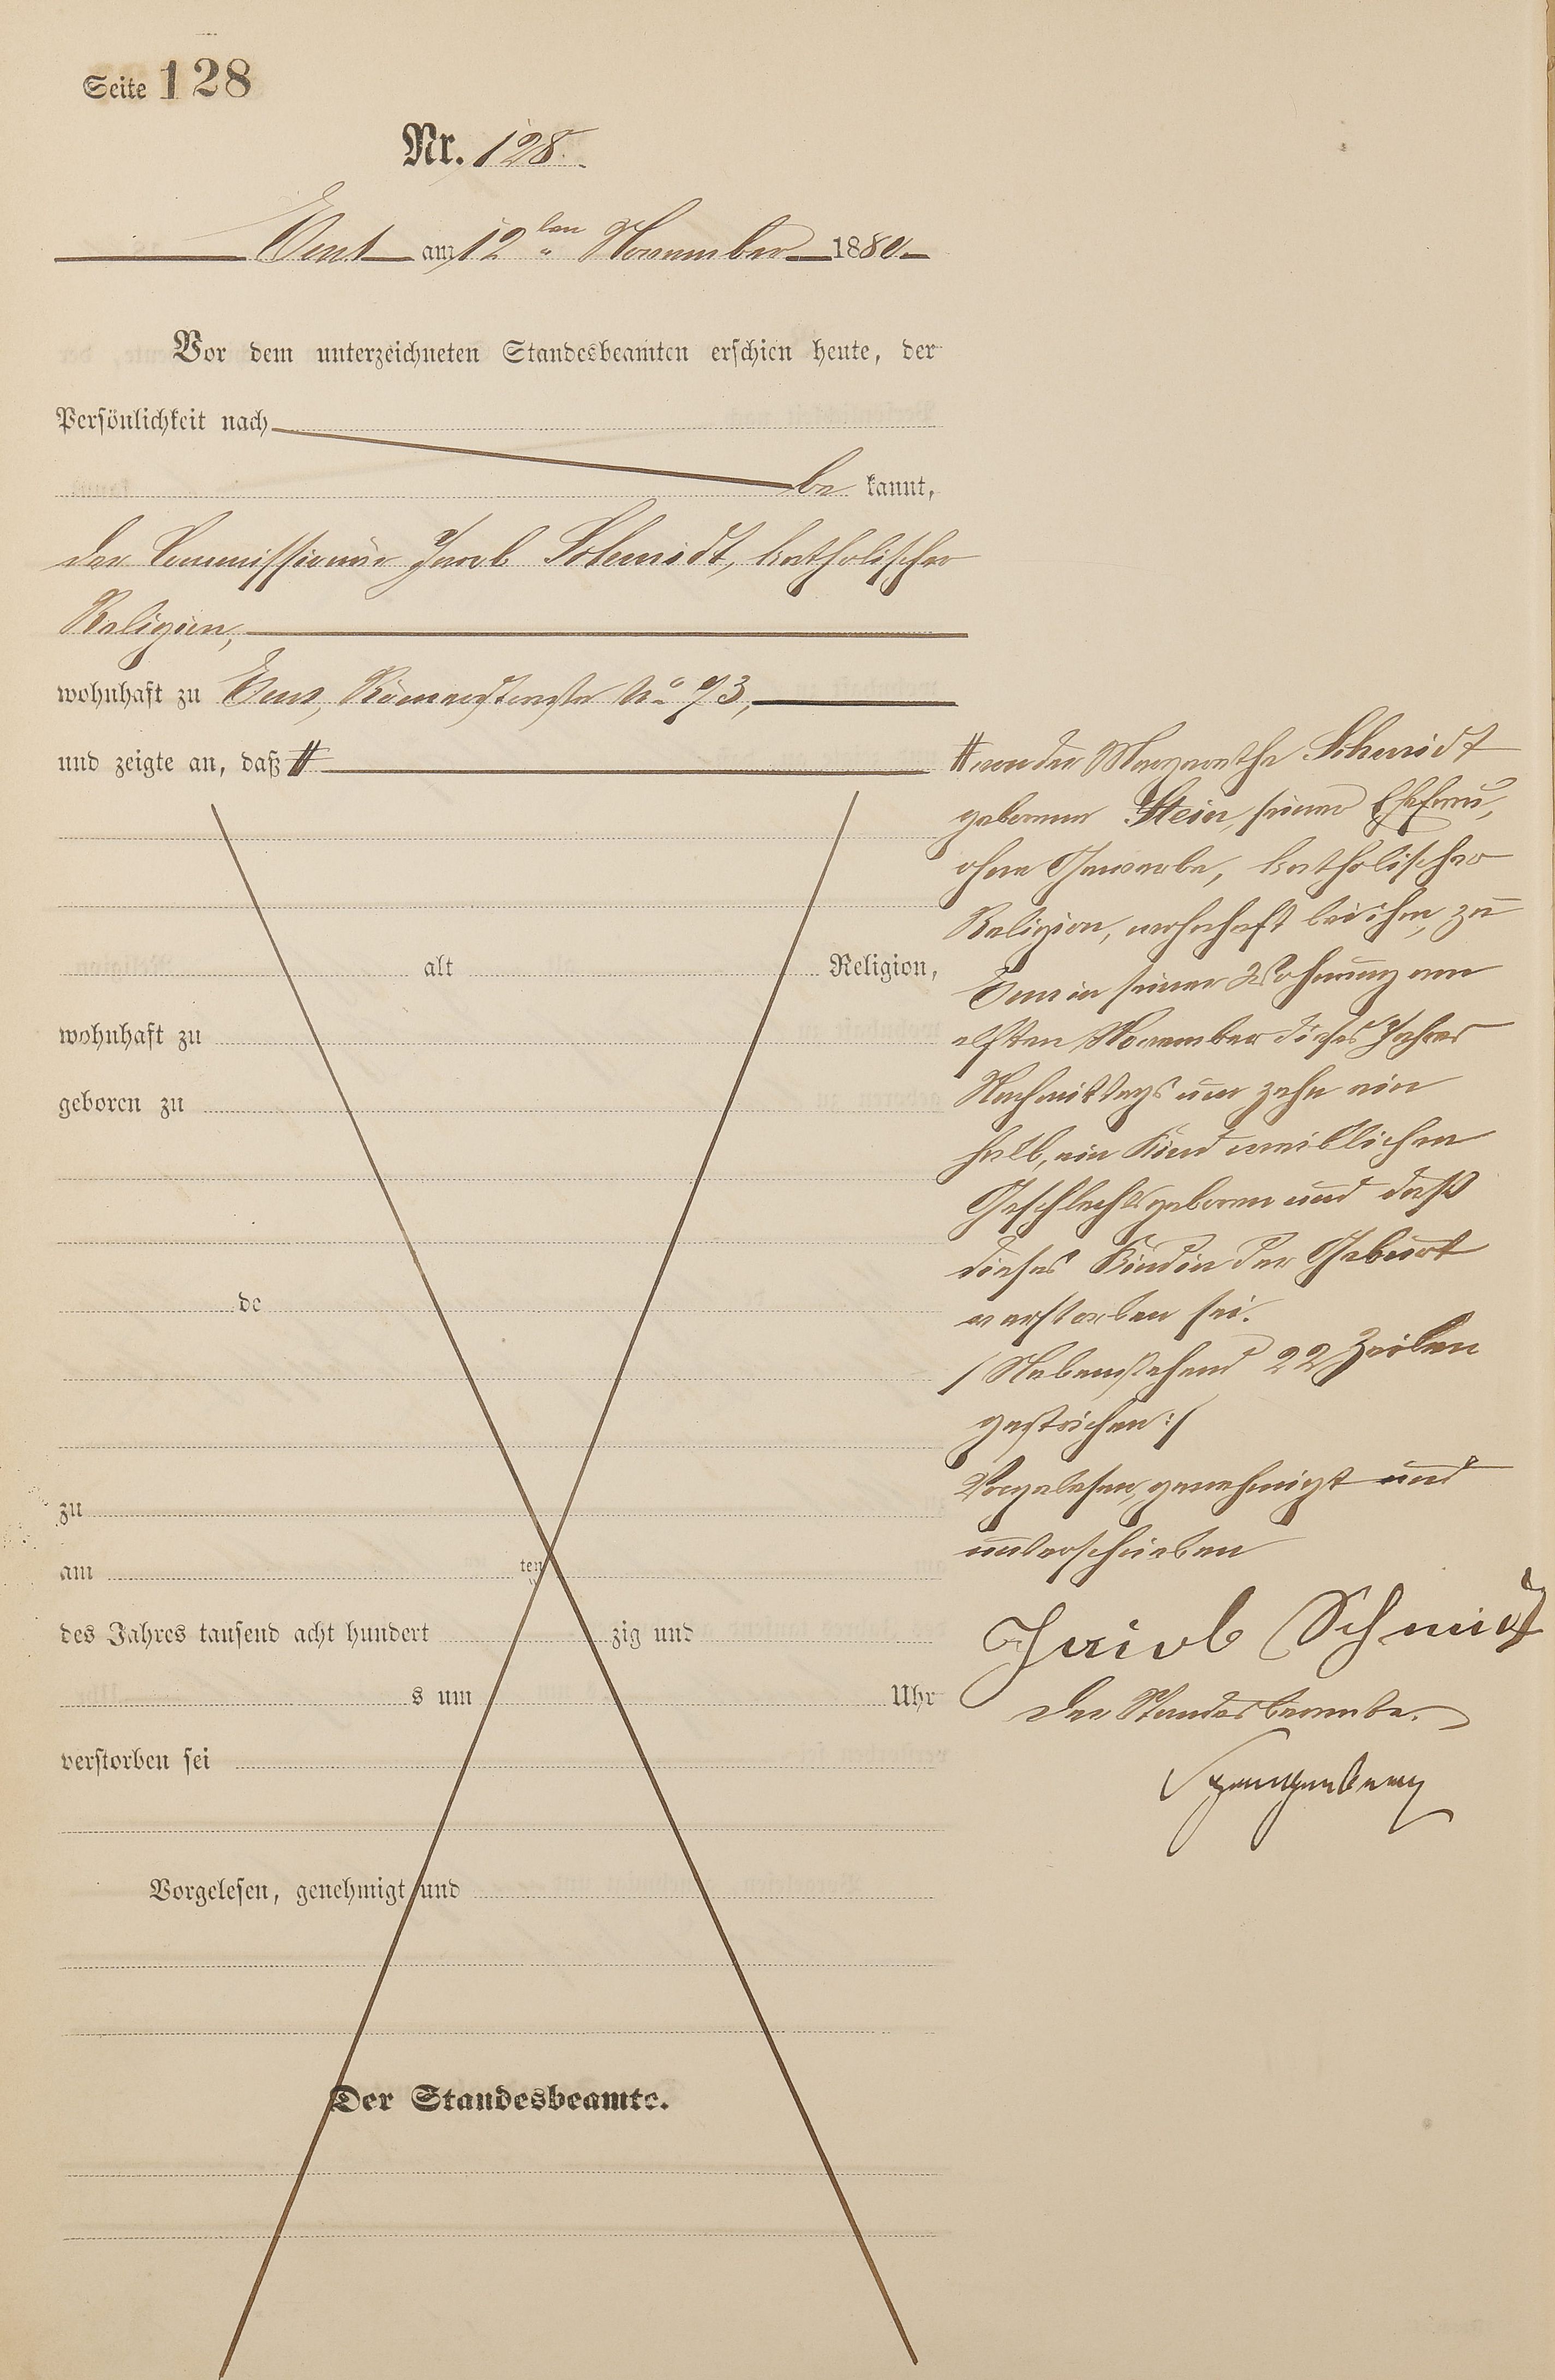 Seite 128
Nr. 128.
Ems am 12ten November 1880
Vor dem unterzeichneten Standesbeamten erschien heute, der
Persönlichkeit nach
be kannt,
der Commissionär Jacob Schmidt, katholischer
Religion,
wohnhaft zu Ems, Römerstraße No 73,
und zeigte an, daß #
alt Religion,
wohnhaft zu
geboren zu
de
zu
am ten
des Jahres tausend acht hundert zig und
s um Uhr
verstorben sei
Vorgelesen, genehmigt und
Der Standesbeamte.
# von der Margarethe Schmidt
geborenen Stein, seiner Ehefrau,
ohne Gewerbe, katholischer
Religion, wohnhaft bei ihm, zu
Ems in seiner Wohnung am
elften November dieses Jahres
Nachmittags um zehn ein
halb, ein Kind weiblichen
Geschlechts geboren und daß
dieses Kind in der Geburt
verstorben sei.
/Nebenstehend 22 Zeilen
gestrichen:/
Vorgelesen, genehmigt und
unterschrieben
Jacob Schmidt
Der Standesbeamte.